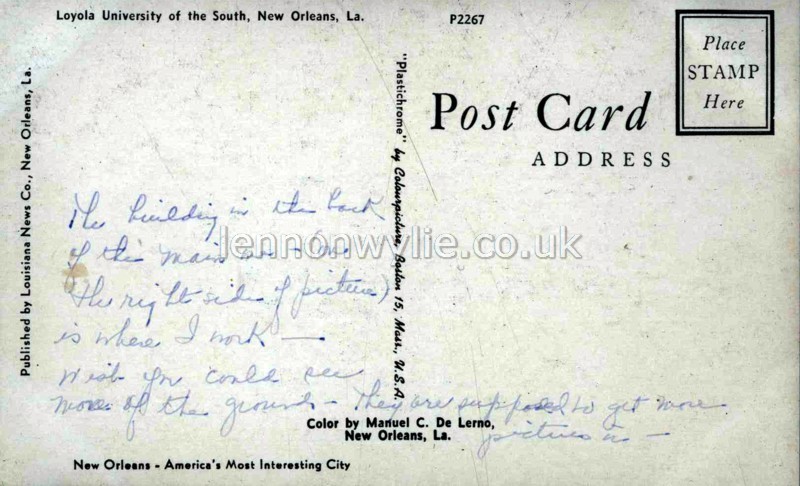 Loyola University of the South, New Orleans, La.
P2267
Place
STAMP
Here
Post Card
ADDRESS
Published by Louisiana News Co., New Orleans, La.
"Plastichrome" by Colourpicture, Boston 15, Mass., U.S.A.
The building in the back
of this main one – on
(the right side of picture)
is where I work —
Wish you could see
more of the grounds – They are supposed to get more
pictures in —
lennonwylie.co.uk
Color by Manuel C. De Lerno,
New Orleans, La.
New Orleans - America's Most Interesting City